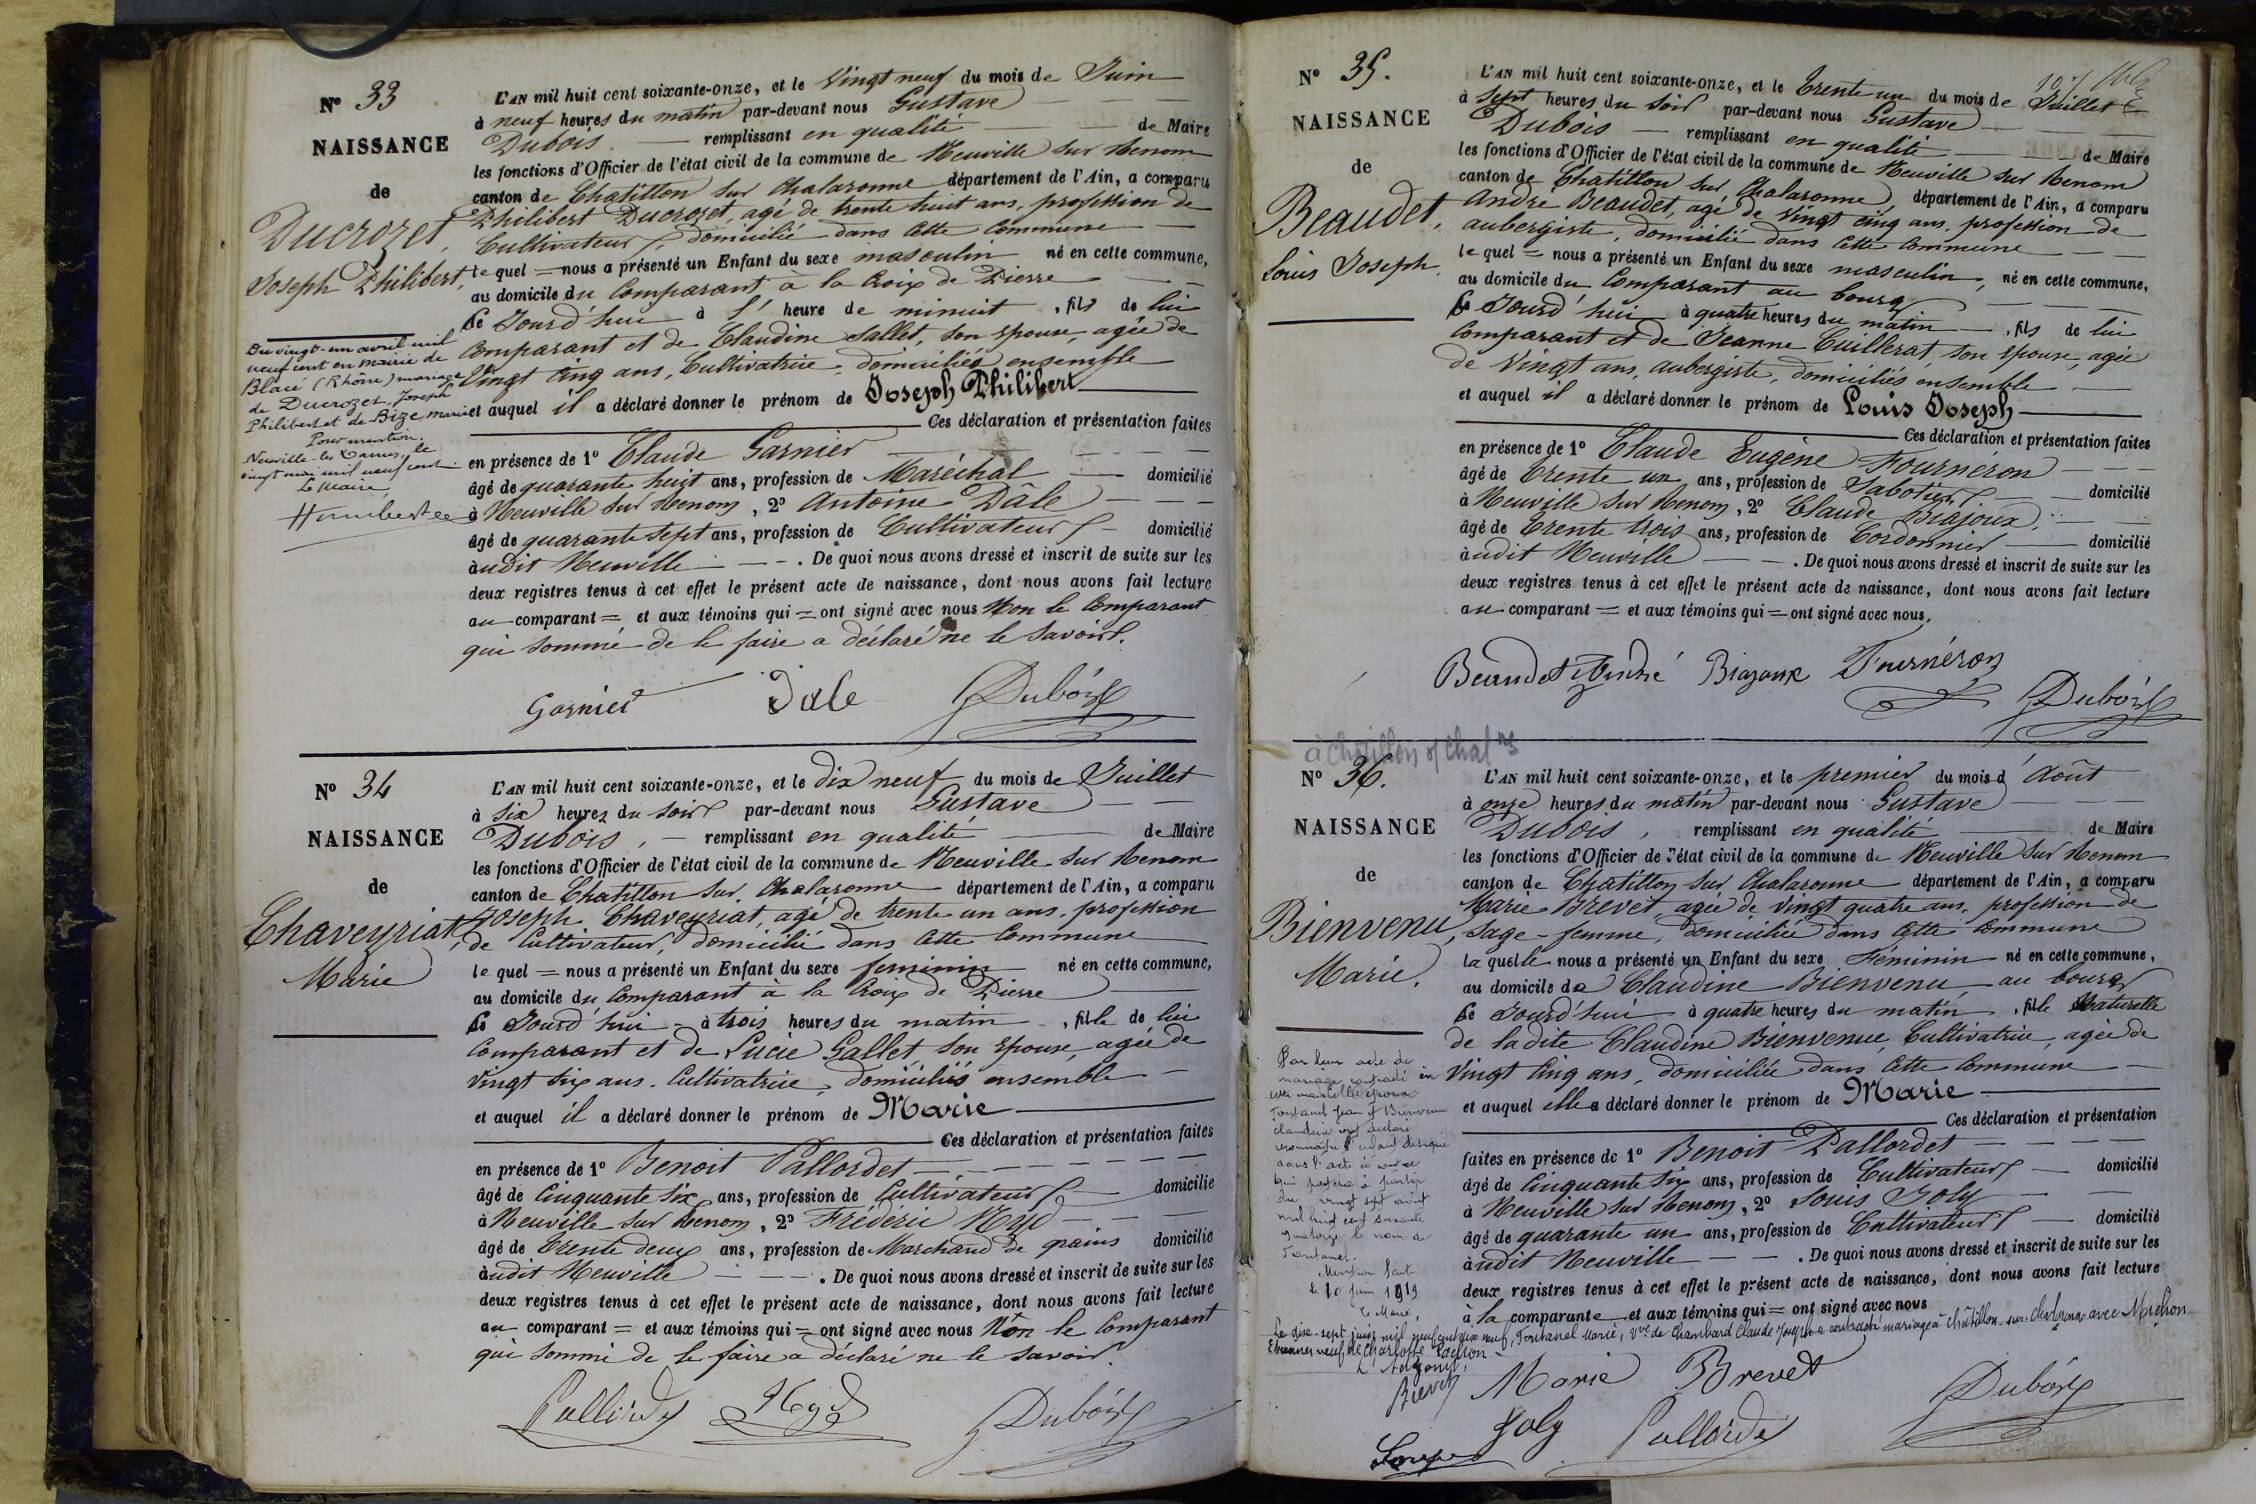 N° 33
NAISSANCE
de
Ducrozet,
Joseph Philibert,
Du vingt-un avril mil
neuf cent en mairie de
Blacé (Rhône) mariage
de Ducrozet Joseph
Philibert et de Bize marie
Pour mention.
Neuville-les-Dames, le
vingt mai mil neuf cent
Le Maire,
L'AN mil huit cent soixante-onze, et le Vingt neuf du mois de Juin
à neuf heures du matin par-devant nous Gustave
Dubois. remplissant en qualité de Maire
les fonctions d'Officier de l'état civil de la commune de Neuville sur Renom
canton de Chatillon sur Chalaronne département de l'Ain, a comparu
Philibert Ducrozet, agé de trente huit ans, profession de
Cultivateur, domicilié dans cette Commune
lequel = nous a présenté un Enfant du sexe masculin né en cette commune,
au domicile du Comparant à la Croix de Pierre
Ce Jourd'hui à l'heure de minuit, fils de lui
Comparant et de Claudine Sallet, son épouse, agée de
Vingt Cinq ans, Cultivatrice, domiciliés ensemble
et auquel il a déclaré donner le prénom de Joseph Philibert
Ces déclaration et présentation faites
en présence de 1° Claude Garnier
âgé de quarante huit ans, profession de Maréchal domicilié
à Neuville sur Renom, 2° Antoine Dâle
âgé de quarante sept ans, profession de Cultivateur domicilié
audit Neuville. De quoi nous avons dressé et inscrit de suite sur les
deux registres tenus à cet effet le présent acte de naissance, dont nous avons fait lecture
au comparant = et aux témoins qui = ont signé avec nous Non le Comparant
qui sommé de le faire a déclaré ne le savoir.
Garnier Dale Dubois
N° 34
NAISSANCE
de
Chaveyriat,
Marie
L'AN mil huit cent soixante-onze, et le dix neuf du mois de Juillet
à Six heures du soir par-devant nous Gustave
Dubois, remplissant en qualité de Maire
les fonctions d'Officier de l'état civil de la commune de Neuville sur Renom
canton de Chatillon sur Chalaronne département de l'Ain, a comparu
Joseph Chaveyriat, agé de trente un ans, profession
de Cultivateur, domicilié dans cette Commune
lequel = nous a présenté un Enfant du sexe feminin né en cette commune,
au domicile du Comparant à la Croix de Pierre
Ce Jourd'hui à trois heures du matin, fille de lui
Comparant et de Lucie Gallet, son épouse, agée de
Vingt Six ans. Cultivatrice, domiciliés ensemble
et auquel il a déclaré donner le prénom de Marie
Ces déclaration et présentation faites
en présence de 1° Benoit Pallordet
âgé de Cinquante Six ans, profession de Cultivateur domicilié
à Neuville sur Renom, 2° Frédéric Nyd
âgé de Trente deux ans, profession de Marchand de grains domicilié
audit Neuville. De quoi nous avons dressé et inscrit de suite sur les
deux registres tenus à cet effet le présent acte de naissance, dont nous avons fait lecture
au comparant = et aux témoins qui = ont signé avec nous Non le Comparant
qui sommé de le faire a déclaré ne le savoir.
Dubois
N° 35.
NAISSANCE
de
Beaudet,
Louis Joseph.
L'AN mil huit cent soixante-onze, et le Trente un du mois de Juillet
à Sept heures du soir par-devant nous Gustave
Dubois remplissant en qualité de Maire
les fonctions d'Officier de l'état civil de la commune de Neuville sur Renom
canton de Chatillon sur Chalaronne, département de l'Ain, a comparu
André Beaudet, agé de Vingt cinq ans, profession de
aubergiste, domicilié dans cette Commune
lequel = nous a présenté un Enfant du sexe masculin, né en cette commune,
au domicile du Comparant au bourg
Ce Jourd'hui à quatre heures du matin, fils de lui
Comparant et de Jeanne Cuillerat son épouse, agée
de Vingt ans, aubergiste, domiciliés ensemble
et auquel il a déclaré donner le prénom de Louis Joseph
Ces déclaration et présentation faites
en présence de 1° Claude Eugène Fournéron
âgé de Trente un ans, profession de Sabotier domicilié
à Neuville sur Renom, 2° Claude Biajoux,
âgé de Trente trois ans, profession de Cordonnier domicilié
audit Neuville. De quoi nous avons dressé et inscrit de suite sur les
deux registres tenus à cet effet le présent acte de naissance, dont nous avons fait lecture
au comparant = et aux témoins qui = ont signé avec nous.
Beaudet André Biajoux Fournéron
Dubois
à Chatillon s/ Chalne
N° 36.
NAISSANCE
de
Bienvenu,
Marie.
Par leur acte de
mariage contracté en
cette mairie les époux
Fontanel Jean et Bienvenu
Claudine ont déclaré
reconnaître l'enfant désigné
dans l'acte ci contre
qui portera à partir
du vingt sept août
mil huit cent soixante
quatorze le nom de
Fontanel.
Mention faite
le 20 juin 1919
Le Maire,
L'AN mil huit cent soixante-onze, et le premier du mois d'Août
à onze heures du matin par-devant nous Gustave
Dubois, remplissant en qualité de Maire
les fonctions d'Officier de l'état civil de la commune de Neuville sur Renom
canton de Chatillon sur Chalaronne département de l'Ain, a comparu
Marie Brevet, agée de Vingt quatre ans, profession de
Sage-femme, domiciliée dans cette Commune
laquelle nous a présenté un Enfant du sexe Féminin né en cette commune,
au domicile de Claudine Bienvenu au bourg
Ce Jourd'hui à quatre heures du matin, fille Naturelle
de ladite Claudine Bienvenue, Cultivatrice, agée de
Vingt Cinq ans, domiciliée dans cette Commune
et auquel elle a déclaré donner le prénom de Marie
Ces déclaration et présentation
faites en présence de 1° Benoit Pallordet
âgé de Cinquante Six ans, profession de Cultivateur domicilié
à Neuville sur Renom, 2° Louis Joly
âgé de quarante un ans, profession de Cultivateur domicilié
audit Neuville. De quoi nous avons dressé et inscrit de suite sur les
deux registres tenus à cet effet le présent acte de naissance, dont nous avons fait lecture
à la comparante et aux témoins qui = ont signé avec nous
Le dix-sept juin mil neuf cent dix neuf, Fontanel Marie, Vve de Chambard Claude Joseph a contracté mariage à Châtillon-sur-Chalaronne avec Morelion
Marie Brevet
Joly Pallordet Dubois